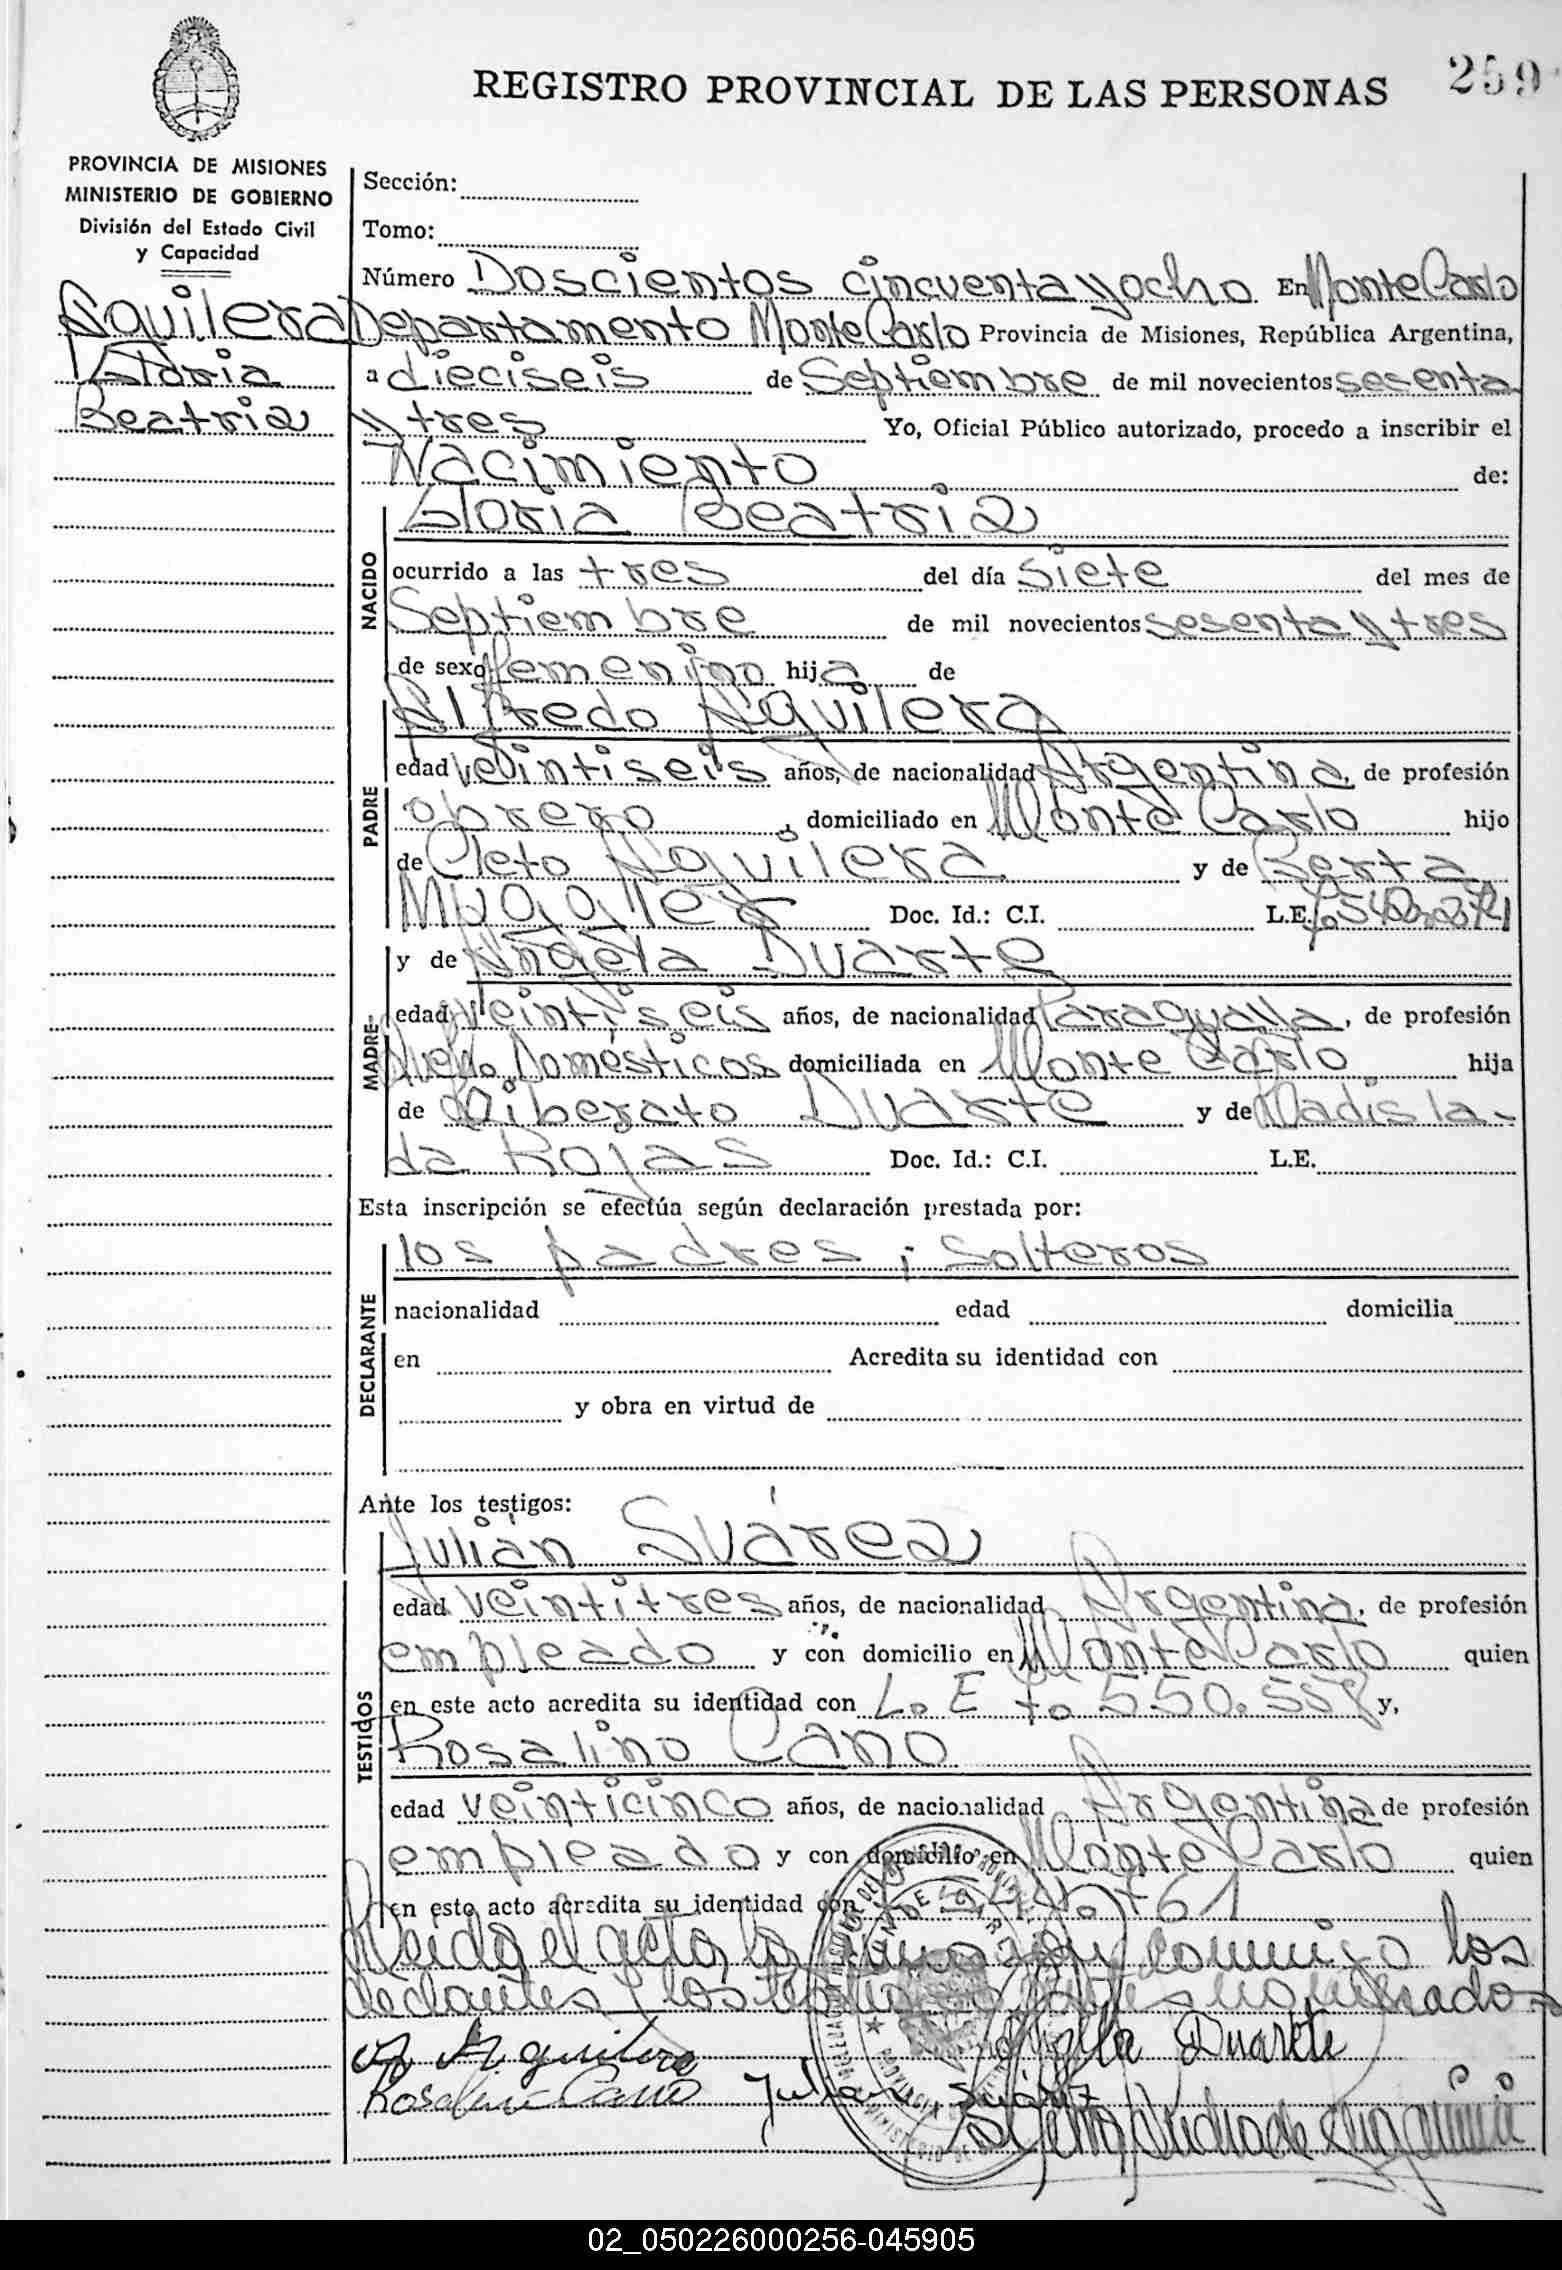 259
REGISTRO PROVINCIAL DE LAS PERSONAS
PROVINCIA DE MISIONES
MINISTERIO DE GOBIERNO
División del Estado Civil
y Capacidad
Aguilera
Gloria
Beatriz
Sección:
Tomo:
Número Doscientos cincuenta y ocho En Monte Carlo
Departamento Monte Carlo Provincia de Misiones, República Argentina,
a dieciseis de Septiembre de mil novecientos sesenta
y tres Yo, Oficial Público autorizado, procedo a inscribir el
Nacimiento de:
Gloria Beatriz
NACIDO
ocurrido a las tres del día siete del mes de
Septiembre de mil novecientos sesenta y tres
de sexo femenino hija de
Alfredo Aguilera
PADRE
edad veintiseis años, de nacionalidad Argentina, de profesión
obrero, domiciliado en Monte Carlo hijo
de Cleto Aguilera y de Berta
Doc. Id.: C.I. L.E.
y de Angela Duarte
MADRE
edad veintiseis años, de nacionalidad Paraguaya, de profesión
Domésticos domiciliada en Monte Carlo hija
de Liberato Duarte y de Ladisla-
da Rojas Doc. Id.: C.I. L.E.
Esta inscripción se efectúa según declaración prestada por:
los padres; Solteros
DECLARANTE
nacionalidad edad domicilia
en Acredita su identidad con
y obra en virtud de
Ante los testigos:
Julián Suárez
TESTIGOS
edad veintitres años, de nacionalidad Argentina, de profesión
empleado y con domicilio en Monte Carlo quien
en este acto acredita su identidad con L. E 7.550.558 y,
Rosalino Cano
edad veinticinco años, de nacionalidad Argentina de profesión
empleado y con domicilio en Monte Carlo quien
en este acto acredita su identidad con
Leida el acta la conmigo los
y los
A Aguilera Duarte
Rosalino Cano Julian Suárez
02_050226000256-045905